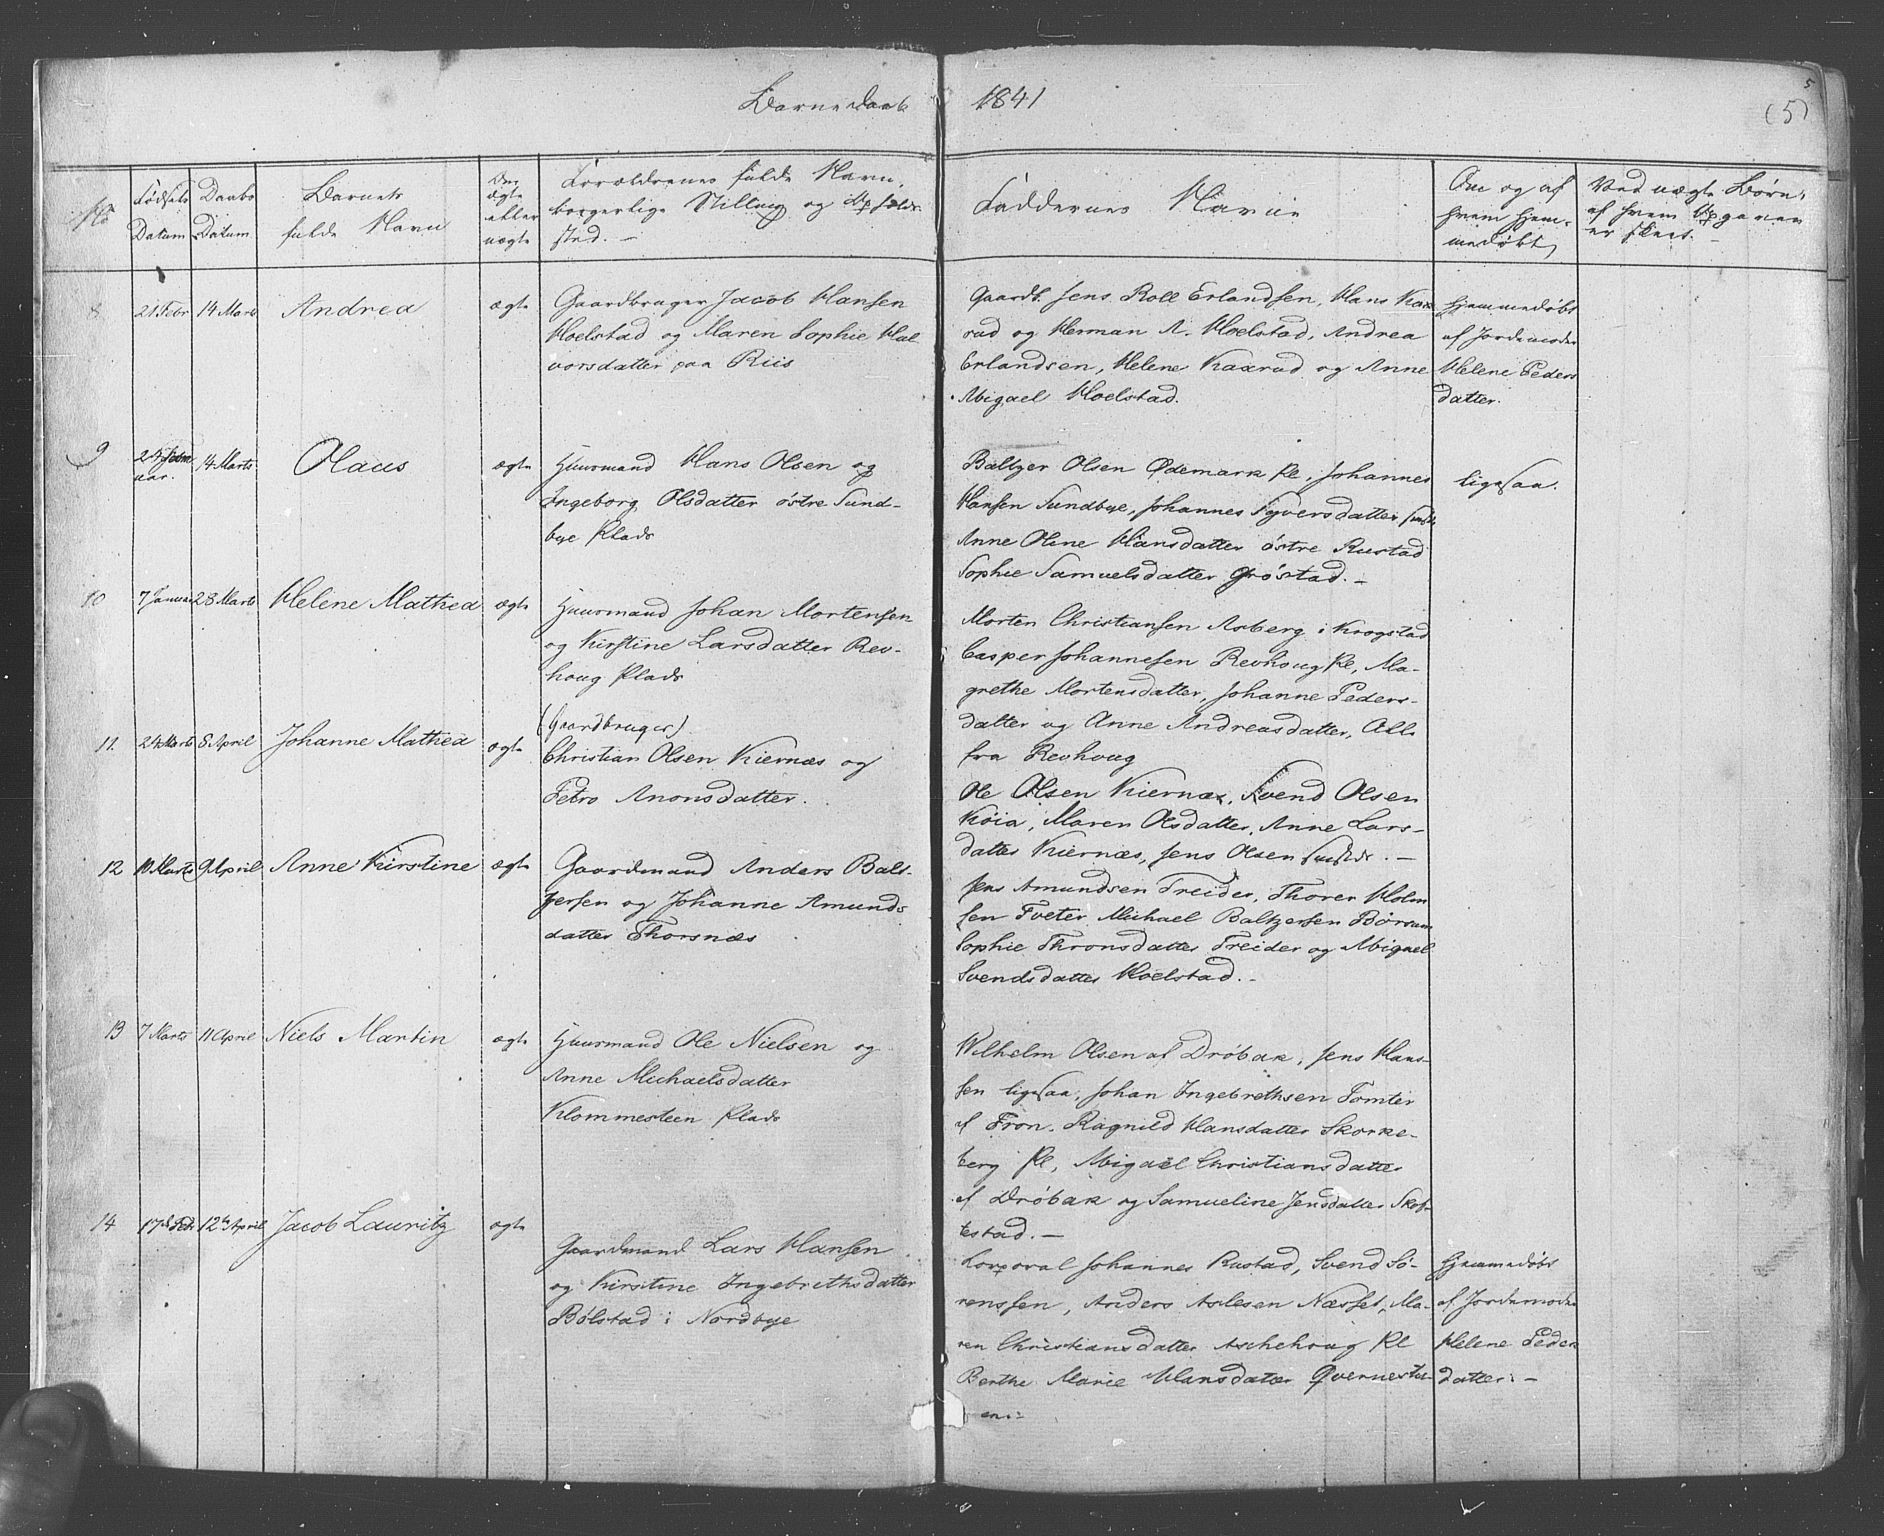 Barnedaab 1841
5
(5)
No
Fødsels Datum
Daabs Datum
Barnets fulde Navn
Om ægte eller uægte
Forældrenes fulde Navn, borgerlige Stilling og Opholdssted. –
Faddernes Navne
Om og af hvem hjemmedøbt
Ved uægte Børn, af hvem Opgaven er skeet. –
8 21 Febr 14 Marts Andrea ægte
Gaardbruger Jacob Hansen
Hoelstad og Maren Sophie Hal
vorsdatter paa Riis
Gaardb. Jens Roll Erlandsen, Hans Kax
rud og Herman A. Hoelstad, Andrea
Erlandsen, Helene Kaxrud og Anne
Abigael Hoelstad.
Hjemmedøbt
af Jordemoder
Helene Peders
datter.
9 24 Febru
uar. 14 Marts. Olaus ægte
Huusmand Hans Olsen og
Ingeborg Olsdatter østre Sund-
bye Plads
Baltzer Olsen Ødemark Pl, Johannes
Hansen Sundbye, Johannes Syversdatter
Anne Oline Hansdatter østre Rustad
Sophie Samuelsdatter Grøstad. –
ligesaa.
10 7 Januar 28 Marts Helene Mathea ægte
Huusmand Johan Mortensen
og Kirstine Larsdatter Rev-
houg Plads
Morten Christiansen Asberg i Krogstad
Casper Johannesen Revhoug Pl, Ma-
grethe Mortensdatter, Johanne Peders-
datter og Anne Andreasdatter, Alle
fra Revhoug
11. 24 Marts 8 April Johanne Mathea ægte
(Gaardbruger)
Christian Olsen Kiernæs og
Petro Anonsdatter.
Ole Olsen Kiernæs, Svend Olsen
Køia, Maren Olsdatter, Anne Lars-
datter Kiernæs, Jens Olsen –
12 10 Marts 9 April Anne Kirstine ægte
Gaardmand Anders Balt-
zersen og Johanne Amunds
datter Thorsnæs
Jens Amundsen Treider, Thorer Holm
sen Tveter Michael Baltzersen Børsum
Sophie Thronsdatter Treider og Abigael
Svendsdatter Hoelstad. –
13 7 Marts 11 April Niels Martin ægte
Huusmand Ole Nielsen og
Anne Michaelsdatter
Klommesteen Plads
Wilhelm Olsen af Drøbak, Jens Han-
sen ligesaa, Johan Ingebrethsen Tomter
af Fron. Ragnild Hansdatter Skorke-
berg Pl, Abigael Christiansdatter
af Drøbak og Samueline Jensdatter Skof-
testad. –
14 17de Febr 12te April Jacob Lauritz ægte
Gaardmand Lars Hansen
og Kirstine Ingebrethsdatter
Bølstad i Nordbye
Corporal Johannes Rustad, Svend Sø-
renssen, Anders Aslesen Næsset, Ma-
ren Christiansdatter Aschehoug Pl
Berthe Marie Hansdatter Qvernestu-
en.
Hjemmedøbt
af Jordemoder
Helene Peders
datter. –